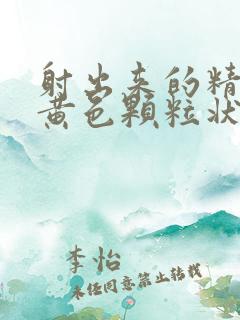 射出来的精
黄色颗粒状
李怡
未经同意禁止转载